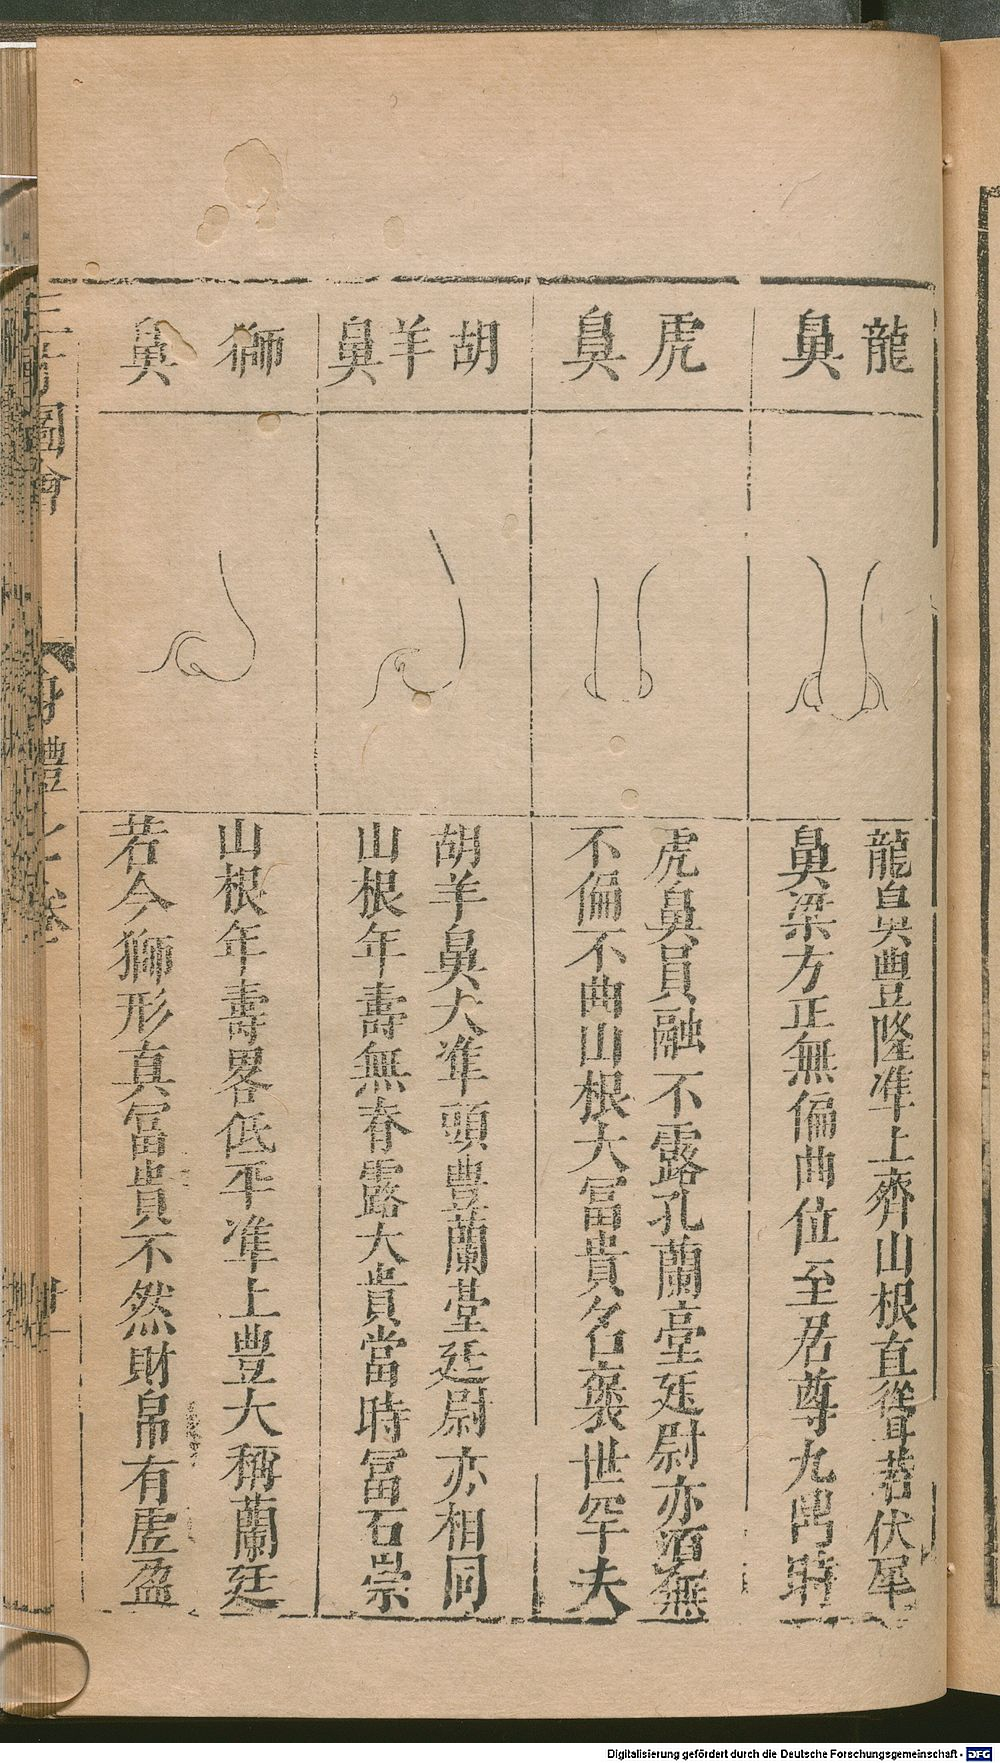 龍鼻
龍鼻豊隆準上齊山根直聳若伏犀
鼻梁方正無偏曲位至君尊九五時
虎鼻
虎鼻員融不露孔蘭臺廷尉亦須無
不偏不曲山根大冨貴名褒世罕夫
胡羊鼻
胡羊鼻大準頭豊蘭臺廷尉亦相同
山根年壽無脊露大貴當時冨石崇
獅鼻
山根年壽畧低平準上豊大稱蘭廷
若今獅形真冨貴不然財帛有虚盈
圖會
身體
卷
Digitalisierung gefördert durch die Deutsche Forschungsgemeinschaft - DFG